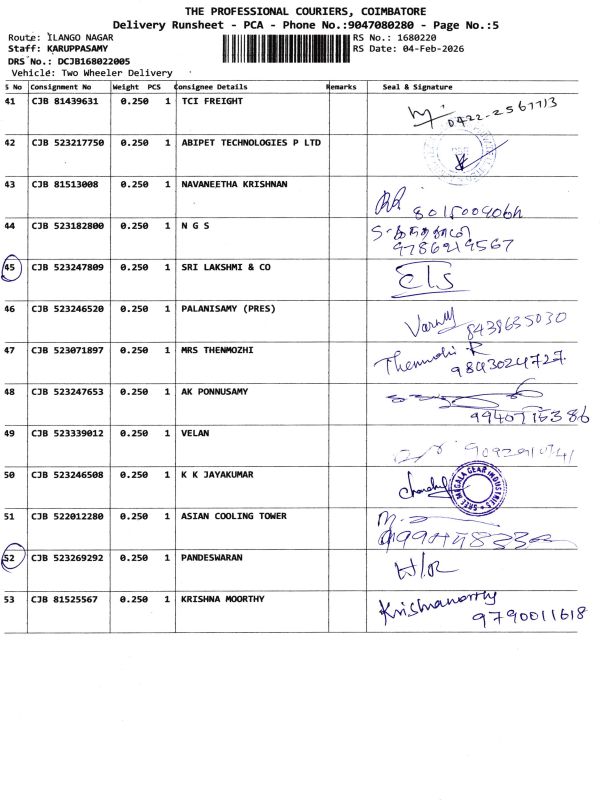 THE PROFESSIONAL COURIERS, COIMBATORE
Delivery Runsheet - PCA - Phone No.:9047080280 - Page No.:5
Route: ILANGO NAGAR RS No.: 1680220
Staff: KARUPPASAMY RS Date: 04-Feb-2026
DRS No.: DCJB168022005
Vehicle: Two Wheeler Delivery
S No Consignment No Weight PCS Consignee Details Remarks Seal & Signature
41 CJB 81439631 0.250 1 TCI FREIGHT
42 CJB 523217750 0.250 1 ABIPET TECHNOLOGIES P LTD
43 CJB 81513008 0.250 1 NAVANEETHA KRISHNAN
44 CJB 523182800 0.250 1 N G S
9786219567
45 CJB 523247809 0.250 1 SRI LAKSHMI & CO
46 CJB 523246520 0.250 1 PALANISAMY (PRES)
8438635030
47 CJB 523071897 0.250 1 MRS THENMOZHI
Thenmozhi R
9843024727
48 CJB 523247653 0.250 1 AK PONNUSAMY
49 CJB 523339012 0.250 1 VELAN
50 CJB 523246508 0.250 1 K K JAYAKUMAR
SREE MEGALA GEAR INDUSTRIES
51 CJB 522012280 0.250 1 ASIAN COOLING TOWER
52 CJB 523269292 0.250 1 PANDESWARAN
53 CJB 81525567 0.250 1 KRISHNA MOORTHY
Krishnamorthy
9790011618